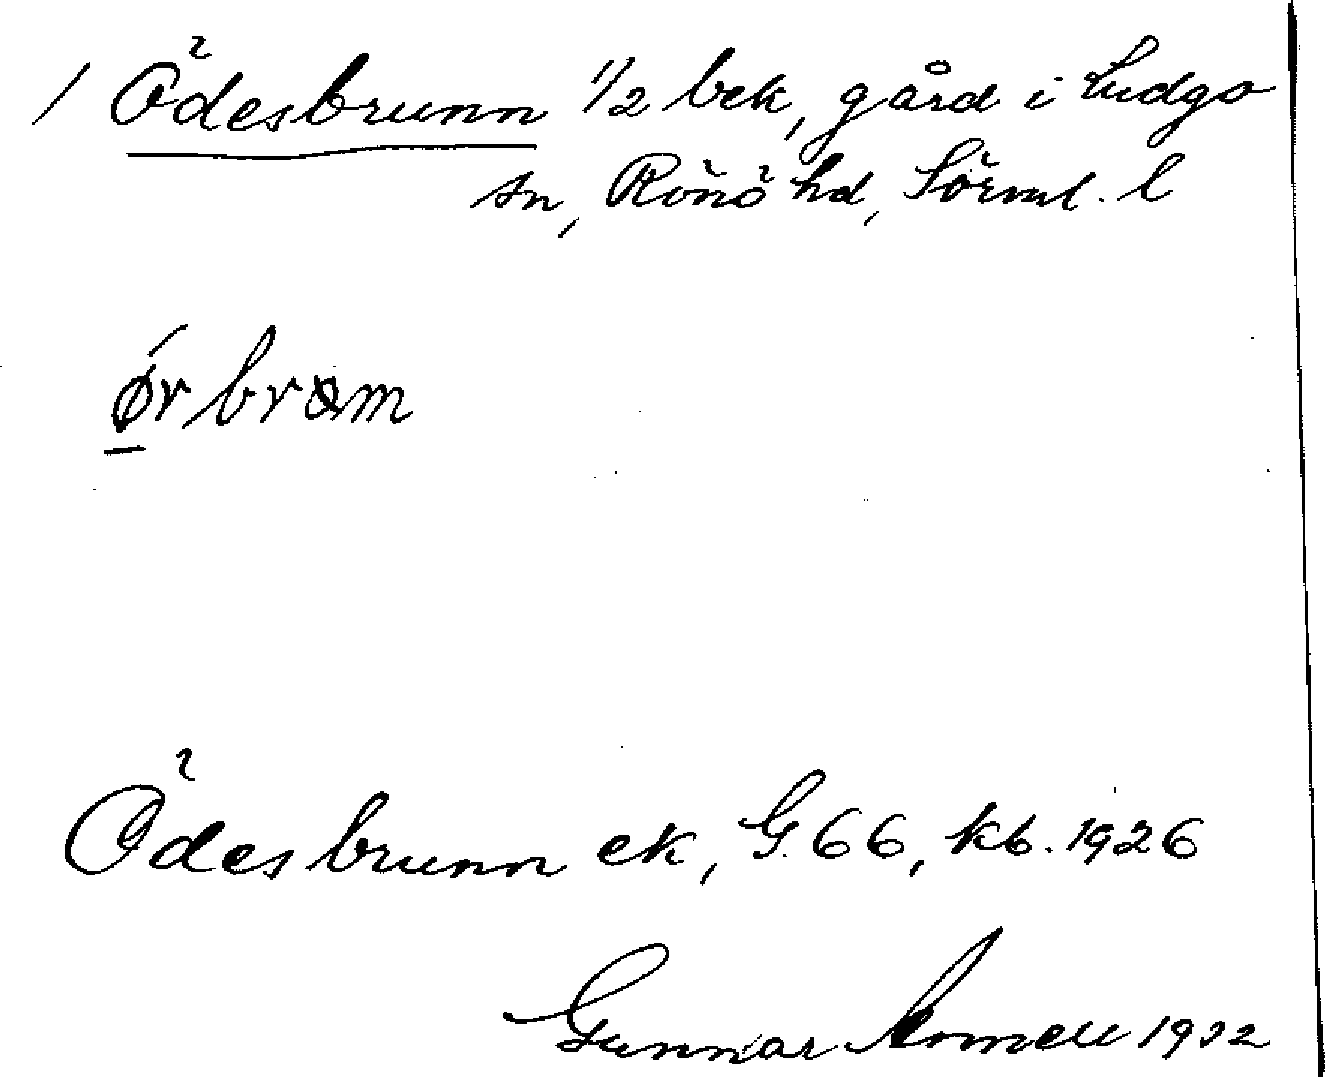 / Ödesbrunn 1/2 bek, gård i Ludgo
sn, Rönö hd, Sörml. l
Ödesbrunn ek, G. 66, kb. 1926
Gunnar 1932